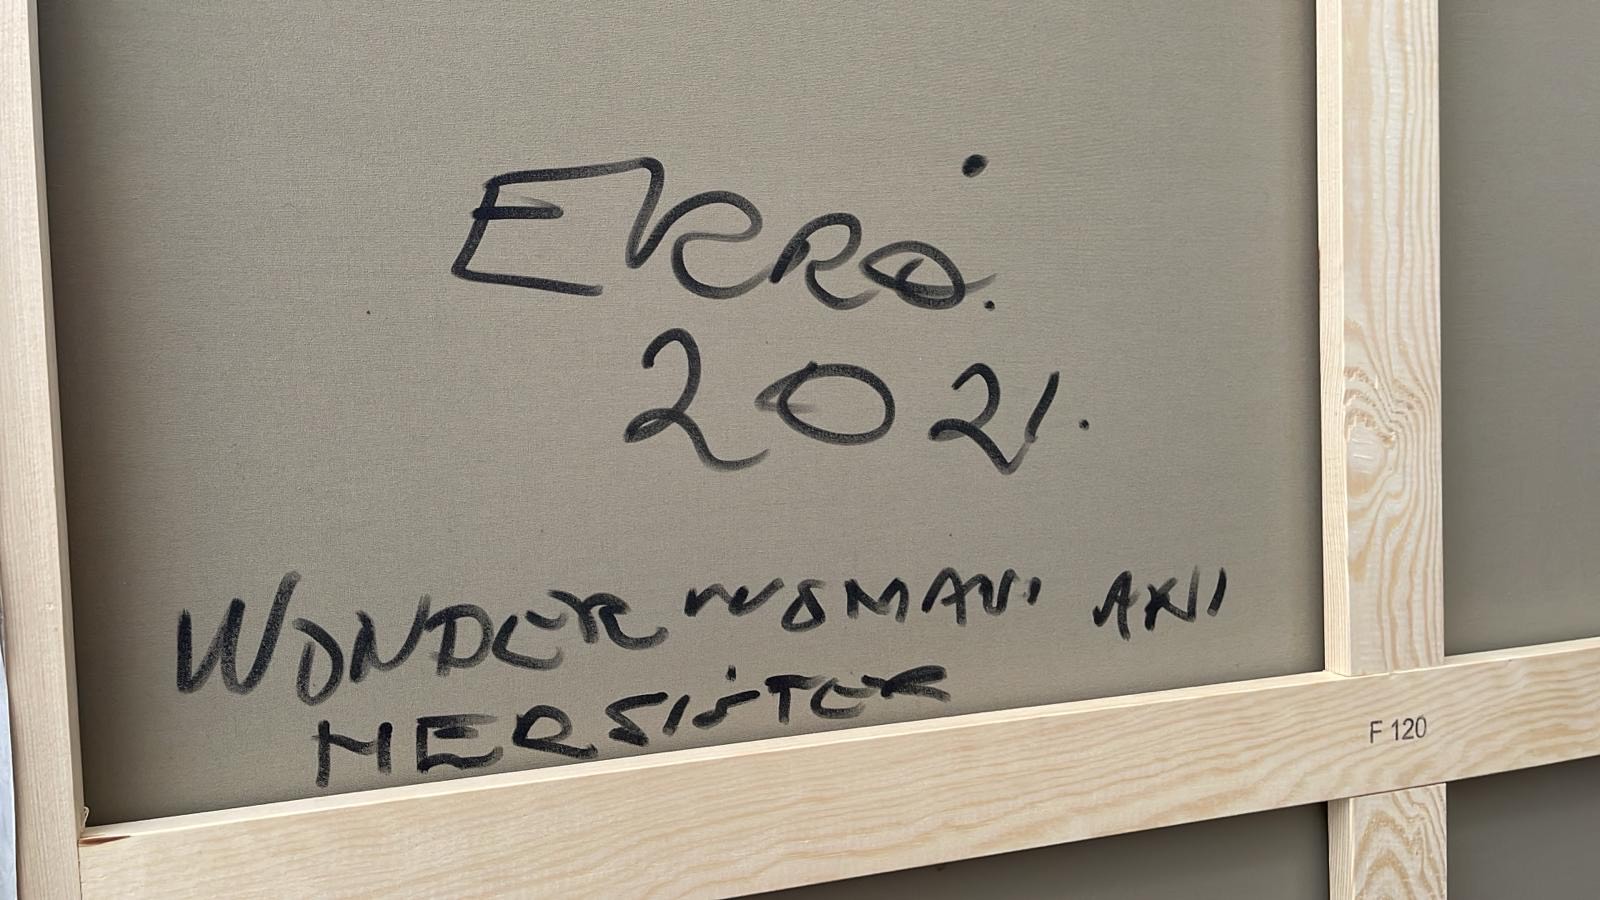 ERRÓ.
2021.
WONDER WOMAN AND
HER SISTER
F 120